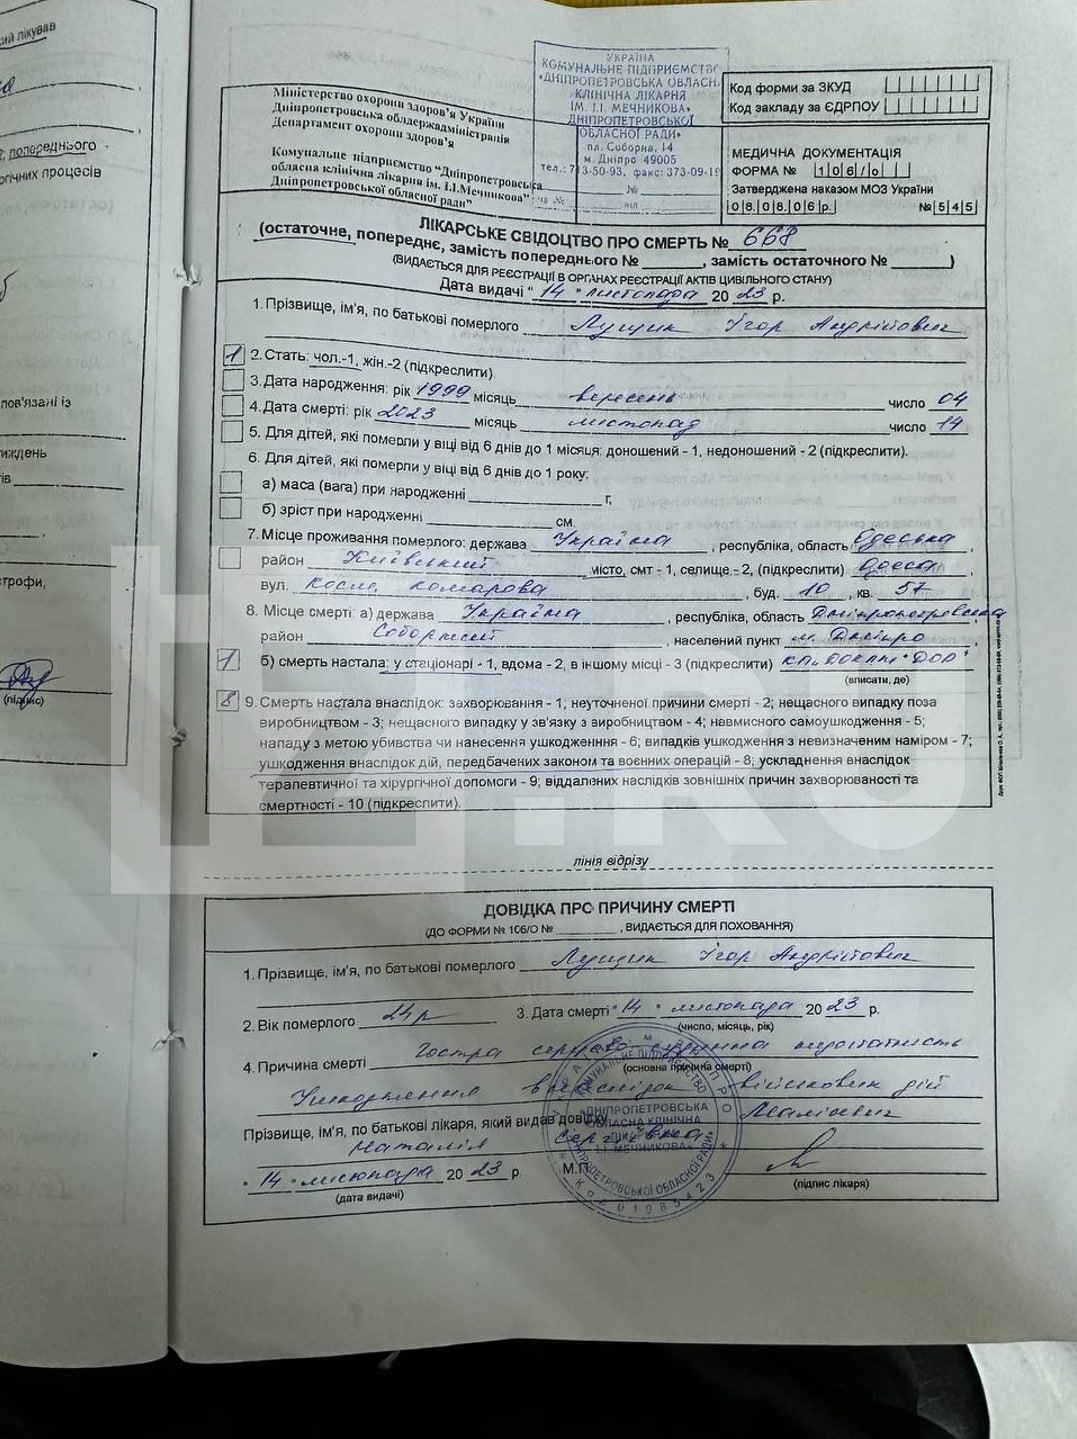 ий лікував
2; попереднього
огічних процесів
пов'язані із
тиждень
ів
строфи,
(підпис)
УКРАЇНА
КОМУНАЛЬНЕ ПІДПРИЄМСТВО
«ДНІПРОПЕТРОВСЬКА ОБЛАСН
КЛІНІЧНА ЛІКАРНЯ
ІМ. І.І. МЕЧНИКОВА»
ДНІПРОПЕТРОВСЬКОЇ
ОБЛАСНОЇ РАДИ»
пл. Соборна, 14
м. Дніпро 49005
тел.: 713-50-93, факс: 373-09-19
№
Міністерство охорони здоров'я України
Дніпропетровська облдержадміністрація
Департамент охорони здоров'я
Комунальне підприємство "Дніпропетровська
обласна клінічна лікарня ім. І.І.Мечникова"
Дніпропетровської обласної ради"
Код форми за ЗКУД
Код закладу за ЄДРПОУ
МЕДИЧНА ДОКУМЕНТАЦІЯ
ФОРМА № 106/о
Затверджена наказом МОЗ України
08.08.06р. №545
ЛІКАРСЬКЕ СВІДОЦТВО ПРО СМЕРТЬ № 668
(остаточне, попереднє, замість попереднього № , замість остаточного № )
(ВИДАЄТЬСЯ ДЛЯ РЕЄСТРАЦІЇ В ОРГАНАХ РЕЄСТРАЦІЇ АКТІВ ЦИВІЛЬНОГО СТАНУ)
Дата видачі "14" листопада 20 23 р.
1. Прізвище, ім'я, по батькові померлого Лущик Ігор Андрійович
1 2. Стать: чол.-1, жін.-2 (підкреслити)
3. Дата народження: рік 1999 місяць вересень число 04
4. Дата смерті: рік 2023 місяць листопад число 14
5. Для дітей, які померли у віці від 6 днів до 1 місяця: доношений - 1, недоношений - 2 (підкреслити).
6. Для дітей, які померли у віці від 6 днів до 1 року:
а) маса (вага) при народженні г,
б) зріст при народженні см.
7. Місце проживання померлого: держава Україна , республіка, область Одеська ,
район Київський місто, смт - 1, селище - 2, (підкреслити) Одеса ,
вул. Космо комарова , буд. 10 , кв. 57
8. Місце смерті: а) держава Україна , республіка, область Дніпропетровська ,
район Соборний , населений пункт м. Дніпро
1 б) смерть настала: у стаціонарі - 1, вдома - 2, в іншому місці - 3 (підкреслити) КП "ДОКЛМ" ДОР"
(вписати, де)
8 9. Смерть настала внаслідок: захворювання - 1, неуточненої причини смерті - 2; нещасного випадку поза
виробництвом - 3; нещасного випадку у зв'язку з виробництвом - 4; навмисного самоушкодження - 5;
нападу з метою убивства чи нанесення ушкодженння - 6; випадків ушкодження з невизначеним наміром - 7;
ушкодження внаслідок дій, передбачених законом та воєнних операцій - 8; ускладнення внаслідок
терапевтичної та хірургічної допомоги - 9; віддалених наслідків зовнішніх причин захворюваності та
смертності - 10 (підкреслити).
IZ.RU
лінія відрізу
ДОВІДКА ПРО ПРИЧИНУ СМЕРТІ
(ДО ФОРМИ № 106/О № , ВИДАЄТЬСЯ ДЛЯ ПОХОВАННЯ)
1. Прізвище, ім'я, по батькові померлого Лущик Ігор Андрійович
2. Вік померлого 24р 3. Дата смерті "14" листопада 20 23 р.
(число, місяць, рік)
4. Причина смерті Гостра серцево-судинна недостатність
(основна причина смерті)
Ушкодження внаслідок військових дій
Прізвище, ім'я, по батькові лікаря, який видав довідку Малікевич
Наталія Сергіївна
"14" листопада 20 23 р. М.П.
(дата видачі)
(підпис лікаря)
КОМУНАЛЬНЕ ПІДПРИЄМСТВО
«ДНІПРОПЕТРОВСЬКА
ОБЛАСНА КЛІНІЧНА
ЛІКАРНЯ
І.І. МЕЧНИКОВА»
ДНІПРОПЕТРОВСЬКОЇ ОБЛАСНОЇ РАДИ»
Код 01985423